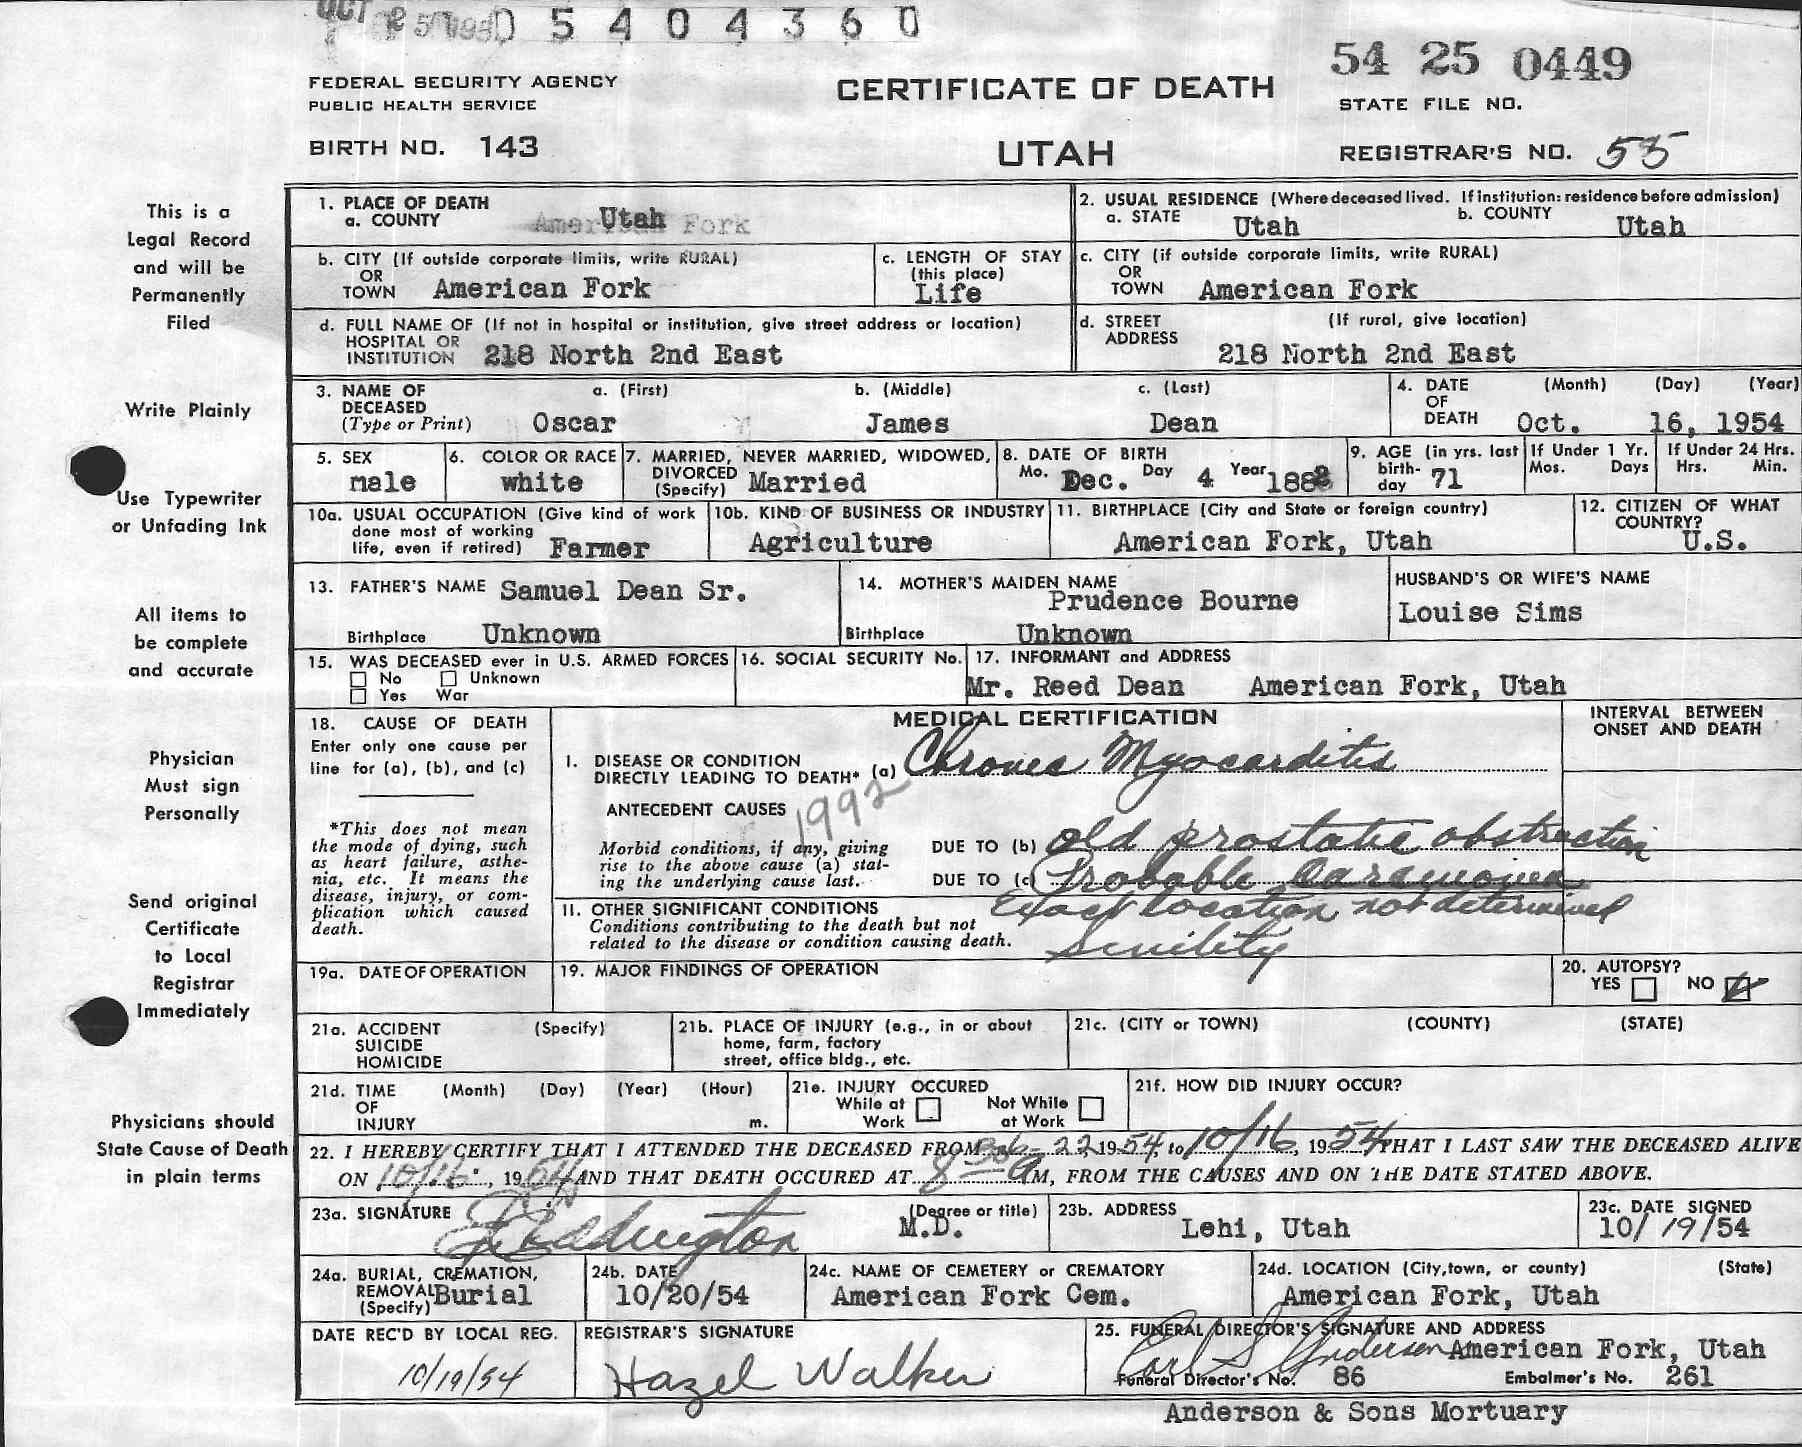 OCT 25 195
05404360
54 25 0449
FEDERAL SECURITY AGENCY
PUBLIC HEALTH SERVICE
CERTIFICATE OF DEATH
STATE FILE NO.
BIRTH NO. 143
UTAH
REGISTRAR'S NO. 55
This is a
Legal Record
and will be
Permanently
Filed
Write Plainly
Use Typewriter
or Unfading Ink
All items to
be complete
and accurate
Physician
Must sign
Personally
Send original
Certificate
to Local
Registrar
Immediately
Physicians should
State Cause of Death
in plain terms
1. PLACE OF DEATH
a. COUNTY American Fork Utah
2. USUAL RESIDENCE (Where deceased lived. If institution: residence before admission)
a. STATE Utah b. COUNTY Utah
b. CITY (If outside corporate limits, write RURAL)
OR
TOWN American Fork
c. LENGTH OF STAY
(this place)
Life
c. CITY (if outside corporate limits, write RURAL)
OR
TOWN American Fork
d. FULL NAME OF (If not in hospital or institution, give street address or location)
HOSPITAL OR
INSTITUTION 218 North 2nd East
d. STREET (If rural, give location)
ADDRESS
218 North 2nd East
3. NAME OF a. (First) b. (Middle) c. (Last)
DECEASED
(Type or Print) Oscar James Dean
4. DATE (Month) (Day) (Year)
OF
DEATH Oct. 16, 1954
5. SEX
male
6. COLOR OR RACE
white
7. MARRIED, NEVER MARRIED, WIDOWED,
DIVORCED
(Specify) Married
8. DATE OF BIRTH
Mo. Dec. Day 4 Year 188
9. AGE (in yrs. last
birth-
day 71
If Under 1 Yr.
Mos. Days
If Under 24 Hrs.
Hrs. Min.
10a. USUAL OCCUPATION (Give kind of work
done most of working
life, even if retired) Farmer
10b. KIND OF BUSINESS OR INDUSTRY
Agriculture
11. BIRTHPLACE (City and State or foreign country)
American Fork, Utah
12. CITIZEN OF WHAT
COUNTRY?
U.S.
13. FATHER'S NAME Samuel Dean Sr.
Birthplace Unknown
14. MOTHER'S MAIDEN NAME
Prudence Bourne
Birthplace Unknown
HUSBAND'S OR WIFE'S NAME
Louise Sims
15. WAS DECEASED ever in U.S. ARMED FORCES
No Unknown
Yes War
16. SOCIAL SECURITY No.
17. INFORMANT and ADDRESS
Mr. Reed Dean American Fork, Utah
18. CAUSE OF DEATH
Enter only one cause per
line for (a), (b), and (c)
*This does not mean
the mode of dying, such
as heart failure, asthe-
nia, etc. It means the
disease, injury, or com-
plication which caused
death.
MEDICAL CERTIFICATION
INTERVAL BETWEEN
ONSET AND DEATH
I. DISEASE OR CONDITION
DIRECTLY LEADING TO DEATH* (a) Chronic Myocarditis
ANTECEDENT CAUSES 1992
Morbid conditions, if any, giving
rise to the above cause (a) stat-
ing the underlying cause last.
DUE TO (b) old prostatic obstruction
DUE TO (c) Probable Carcinoma
Exact location not determined
II. OTHER SIGNIFICANT CONDITIONS
Conditions contributing to the death but not
related to the disease or condition causing death.
Senility
19a. DATE OF OPERATION
19. MAJOR FINDINGS OF OPERATION
20. AUTOPSY?
YES NO
21a. ACCIDENT (Specify)
SUICIDE
HOMICIDE
21b. PLACE OF INJURY (e.g., in or about
home, farm, factory
street, office bldg., etc.
21c. (CITY or TOWN) (COUNTY) (STATE)
21d. TIME (Month) (Day) (Year) (Hour)
OF
INJURY m.
21e. INJURY OCCURED
While at Work Not While at Work
21f. HOW DID INJURY OCCUR?
22. I HEREBY CERTIFY THAT I ATTENDED THE DECEASED FROM 22 1954, to 10/16, 1954 THAT I LAST SAW THE DECEASED ALIVE
ON 10/16, 1954 AND THAT DEATH OCCURED AT 8 30 AM, FROM THE CAUSES AND ON THE DATE STATED ABOVE.
23a. SIGNATURE Eddington (Degree or title)
M.D.
23b. ADDRESS
Lehi, Utah
23c. DATE SIGNED
10/19/54
24a. BURIAL, CREMATION,
REMOVAL
(Specify) Burial
24b. DATE
10/20/54
24c. NAME OF CEMETERY or CREMATORY
American Fork Cem.
24d. LOCATION (City, town, or county) (State)
American Fork, Utah
DATE REC'D BY LOCAL REG.
10/19/54
REGISTRAR'S SIGNATURE
Hazel Walker
25. FUNERAL DIRECTOR'S SIGNATURE AND ADDRESS
Earl S Anderson American Fork, Utah
Funeral Director's No. 86 Embalmer's No. 261
Anderson & Sons Mortuary